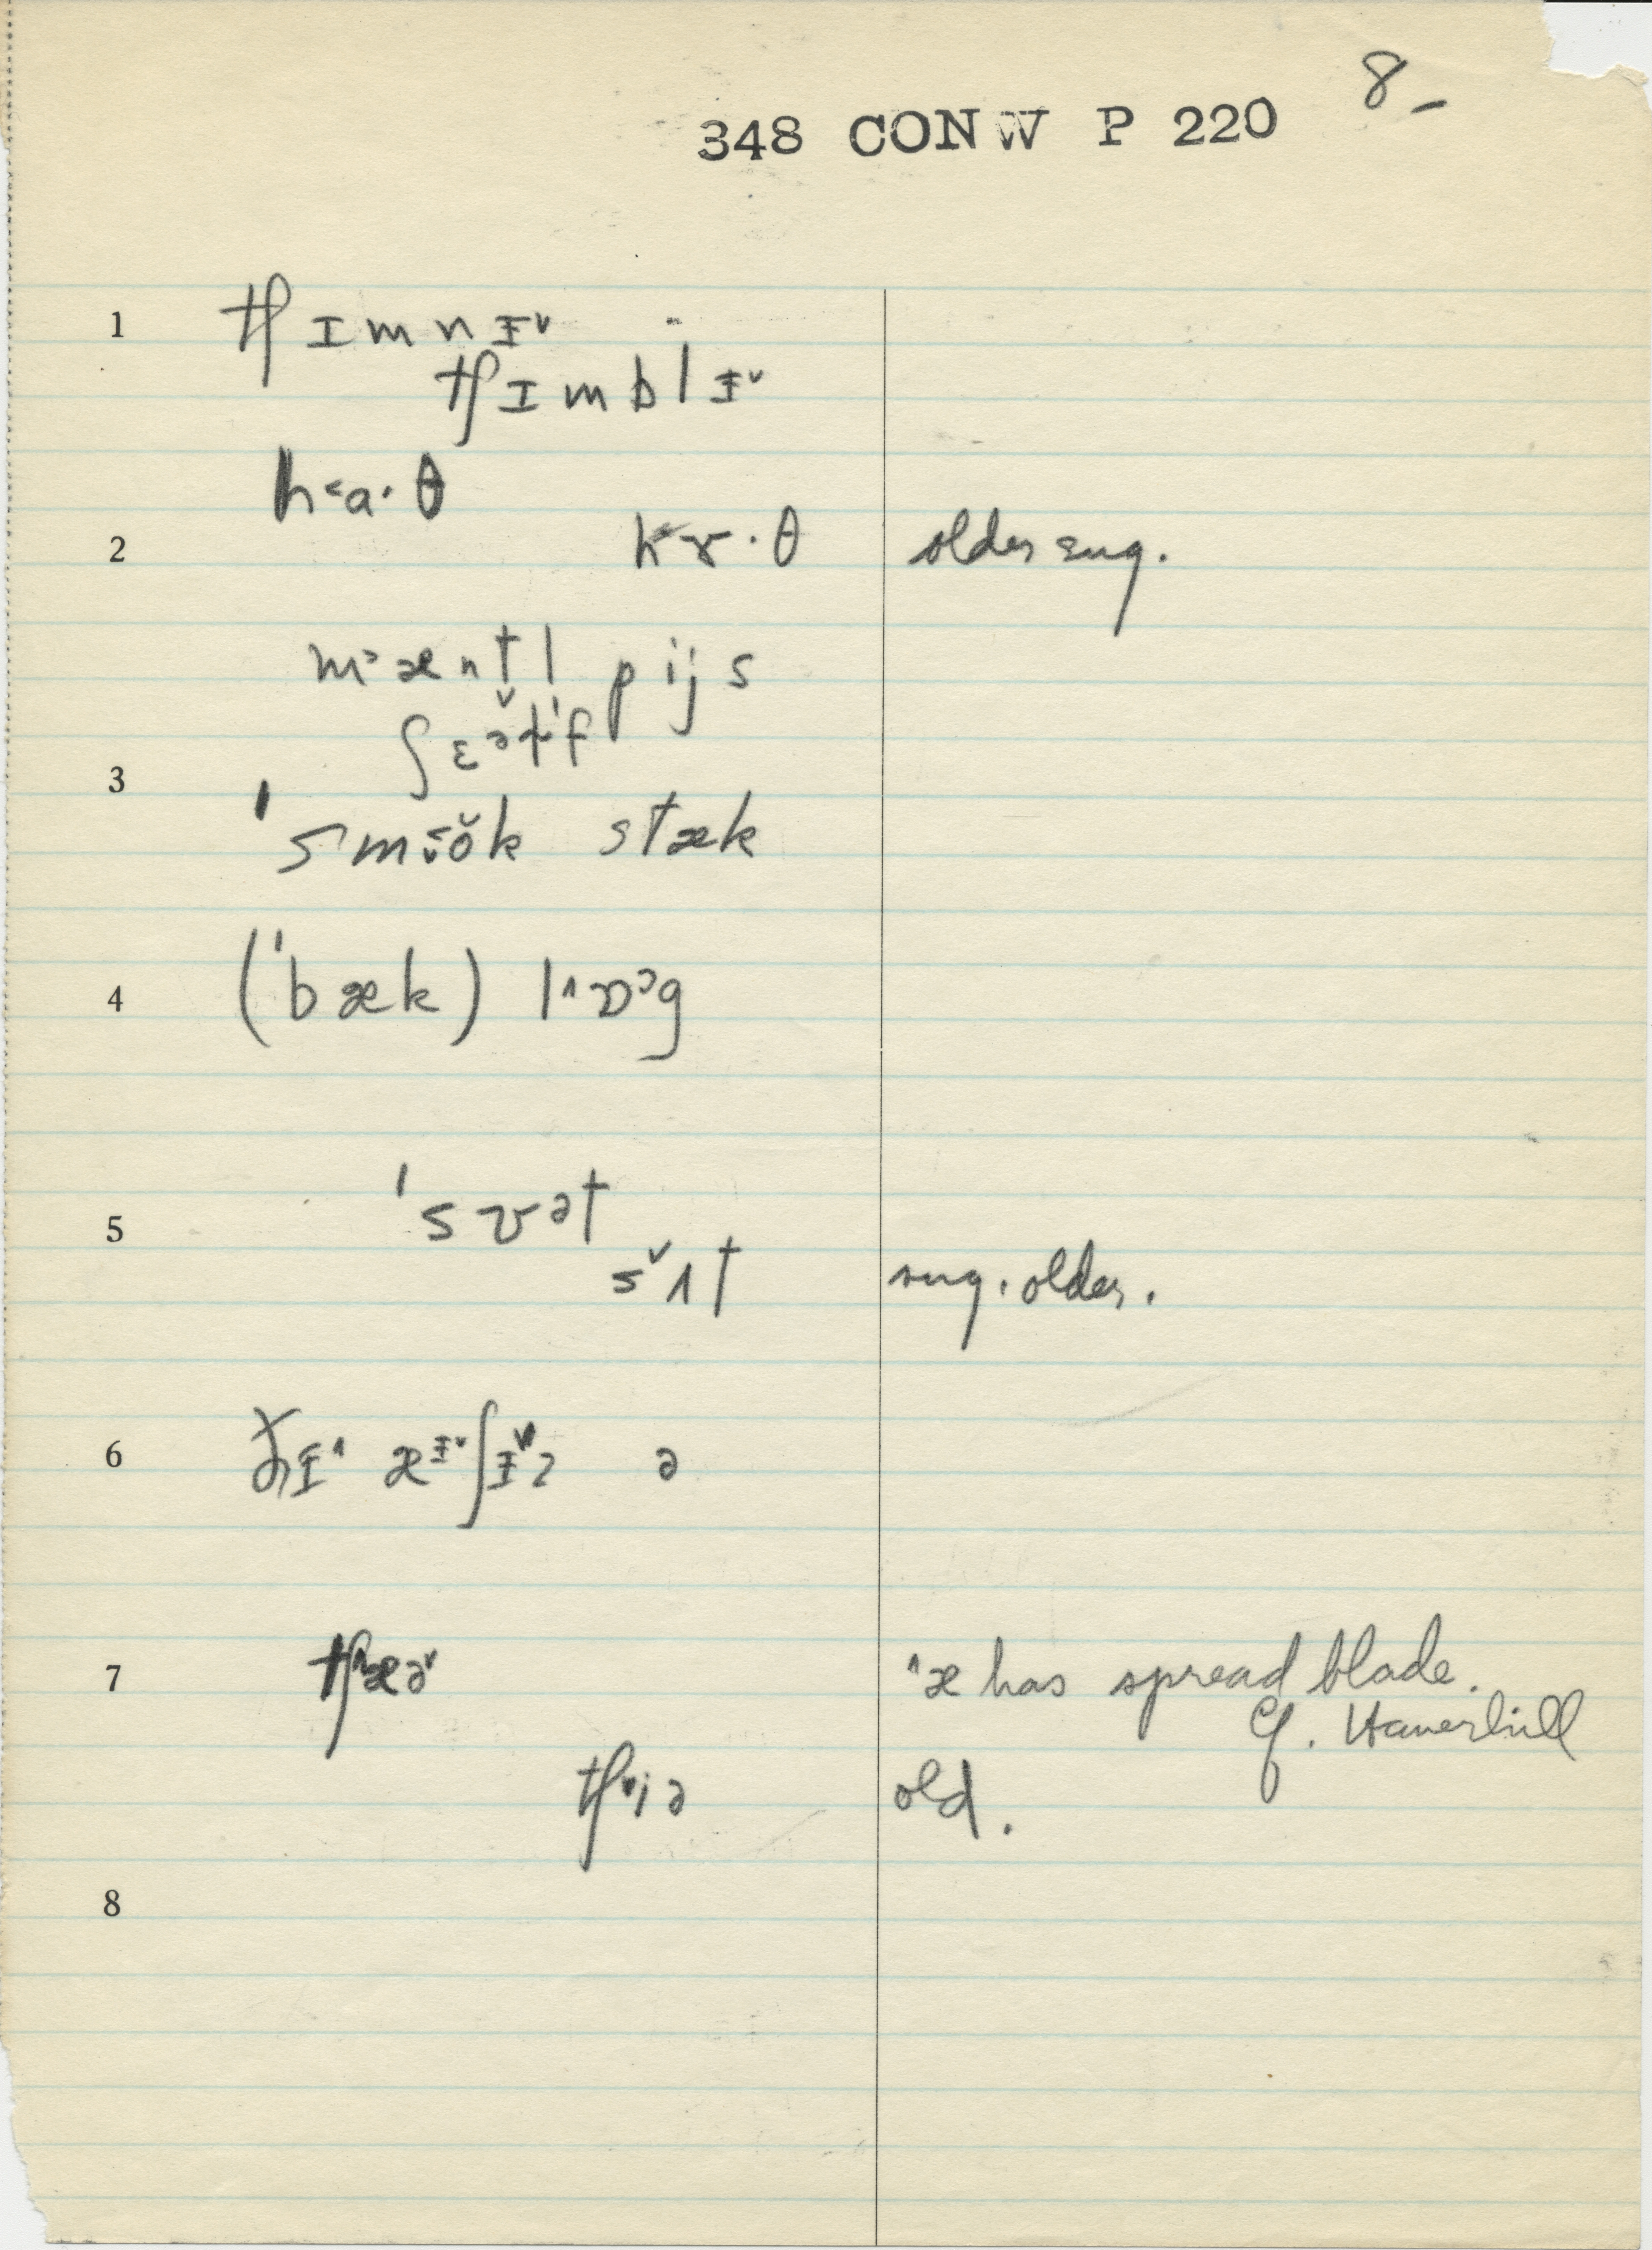 8-
348 CONW P 220
1 tʃɪmnɪ˅
tʃɪmblɪ˅
h˂a·θ
2 h˂ɤ·θ older sug.
m˃æntl pijs
ʃɛətɪf
3 ˈsm˂ŏk stæk
4 (ˈbæk) l˄ɒɔg
5 ˈsʊət
s˅ʌt sug. older.
6 ðɪ˄ æɪ˅ʃɪ˅z ə
7 tʃ˄æə˅ ˄æ has spread blade.
Cf. Haverhill
tʃ˅iə old.
8